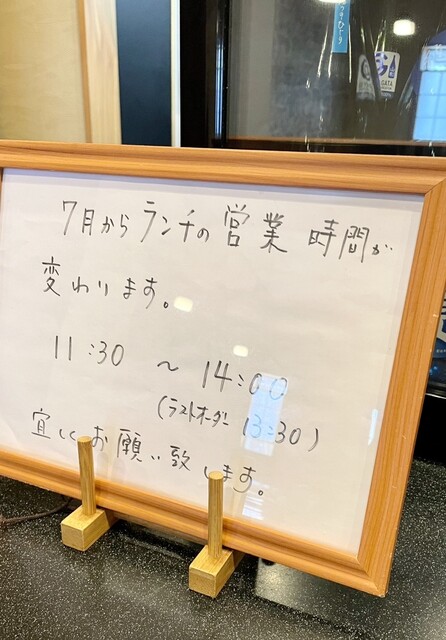 7月からランチの営業時間が
変わります。
11:30 ～ 14:00
(ラストオーダー 13:30)
宜しくお願い致します。